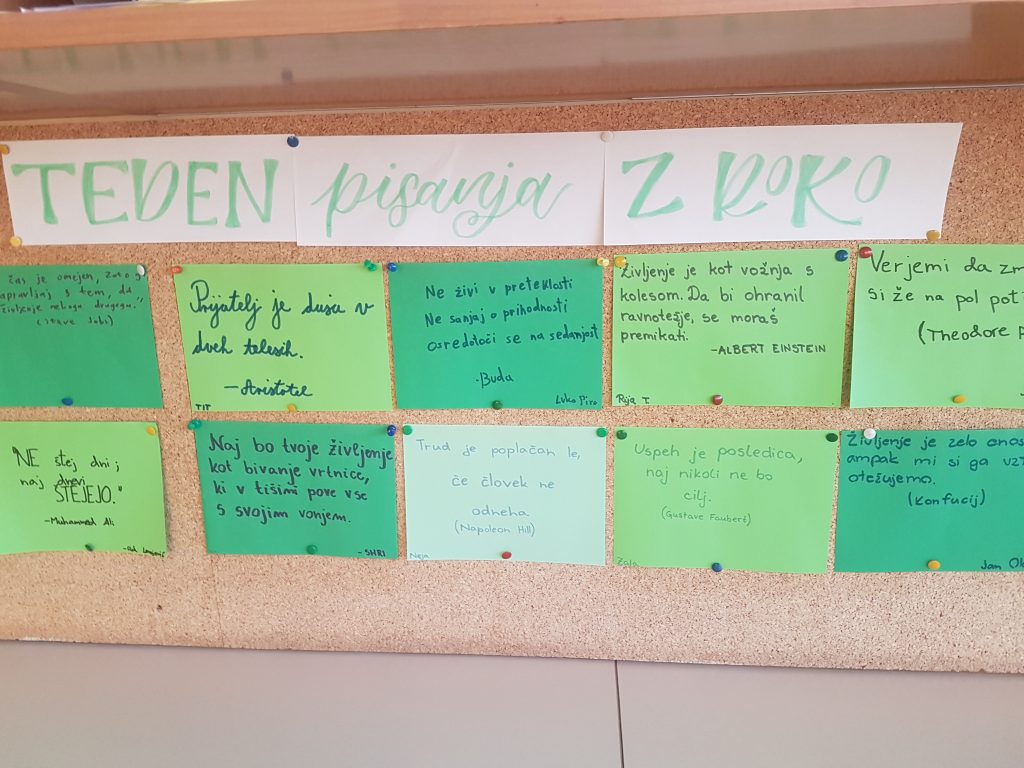 TEDEN pisanja Z ROKO
čas je omejen, zato g
apravljaj s tem, da
življenje nekoga drugega."
(Steve Jobs)
Prijatelj je duša v
dveh telesih.
-Aristotel
TIT
Ne živi v preteklosti
Ne sanjaj o prihodnosti
osredotoči se na sedanjost
-Buda
Luka Piro
Življenje je kot vožnja s
kolesom. Da bi ohranil
ravnotežje, se moraš
premikati.
-ALBERT EINSTEIN
Rija T.
Verjemi da zm
si že na pol poti
(Theodore
"NE štej dni;
naj dnevi
ŠTEJEJO."
-Muhammad Ali
Naj bo tvoje življenje
kot bivanje vrtnice,
ki v tišini pove vse
s svojim vonjem.
- SHRI
Trud je poplačan le,
če človek ne
odneha.
(Napoleon Hill)
Neja
Uspeh je posledica,
naj nikoli ne bo
cilj.
(Gustave Faubert)
Zala
Življenje je zelo enos
ampak mi si ga vzt
otežujemo.
(Konfucij)
Jam Ok